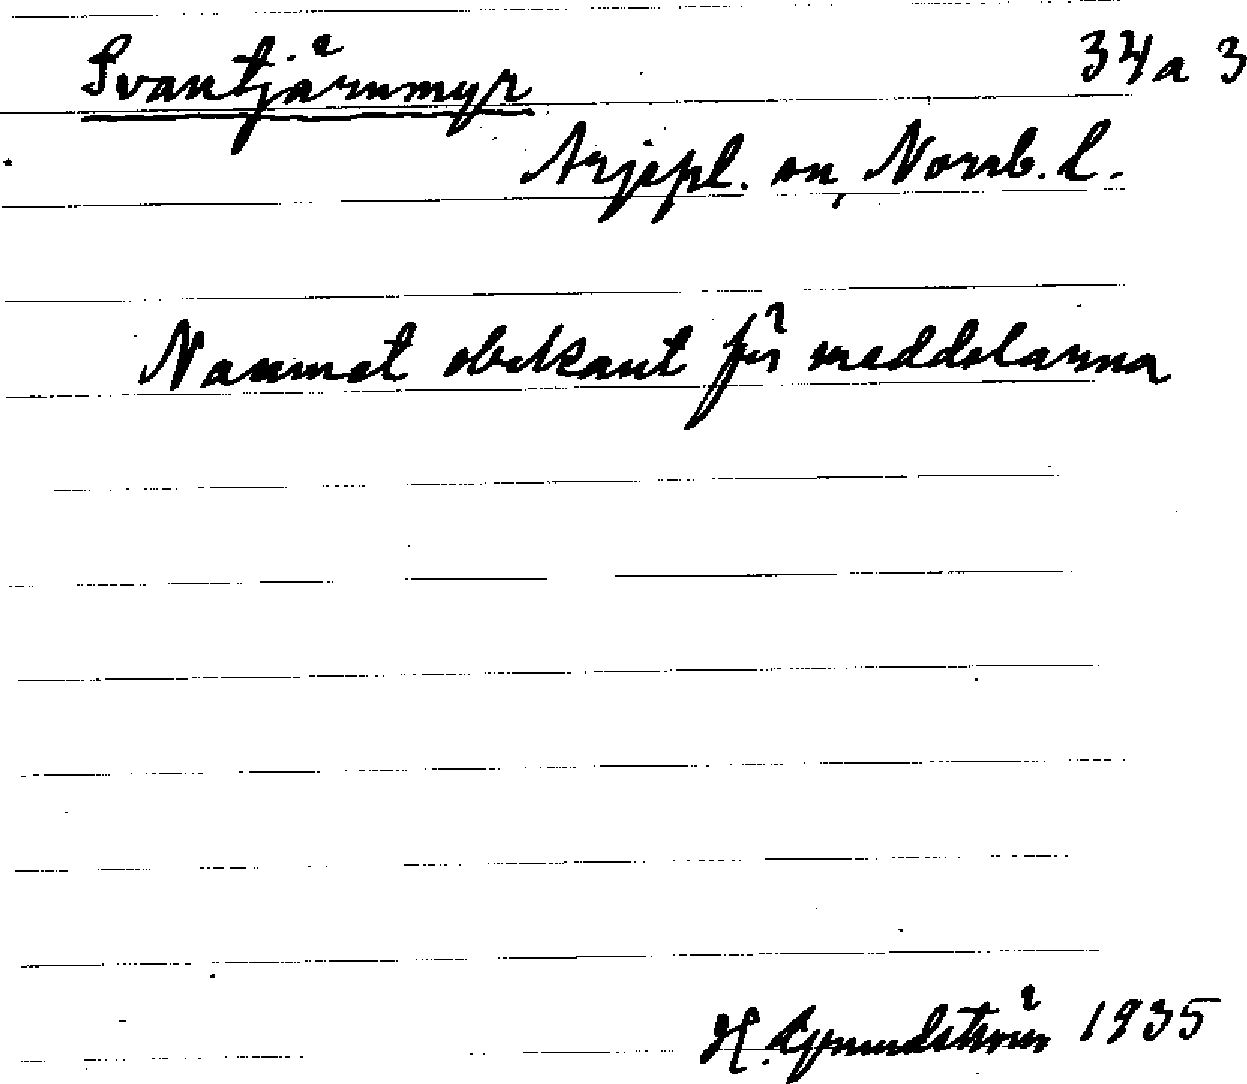 Svantjärnmyr
34a 3
Arjepl. sn, Norrb. l.
Namnet obekant för meddelarna
H. Grundström 1935